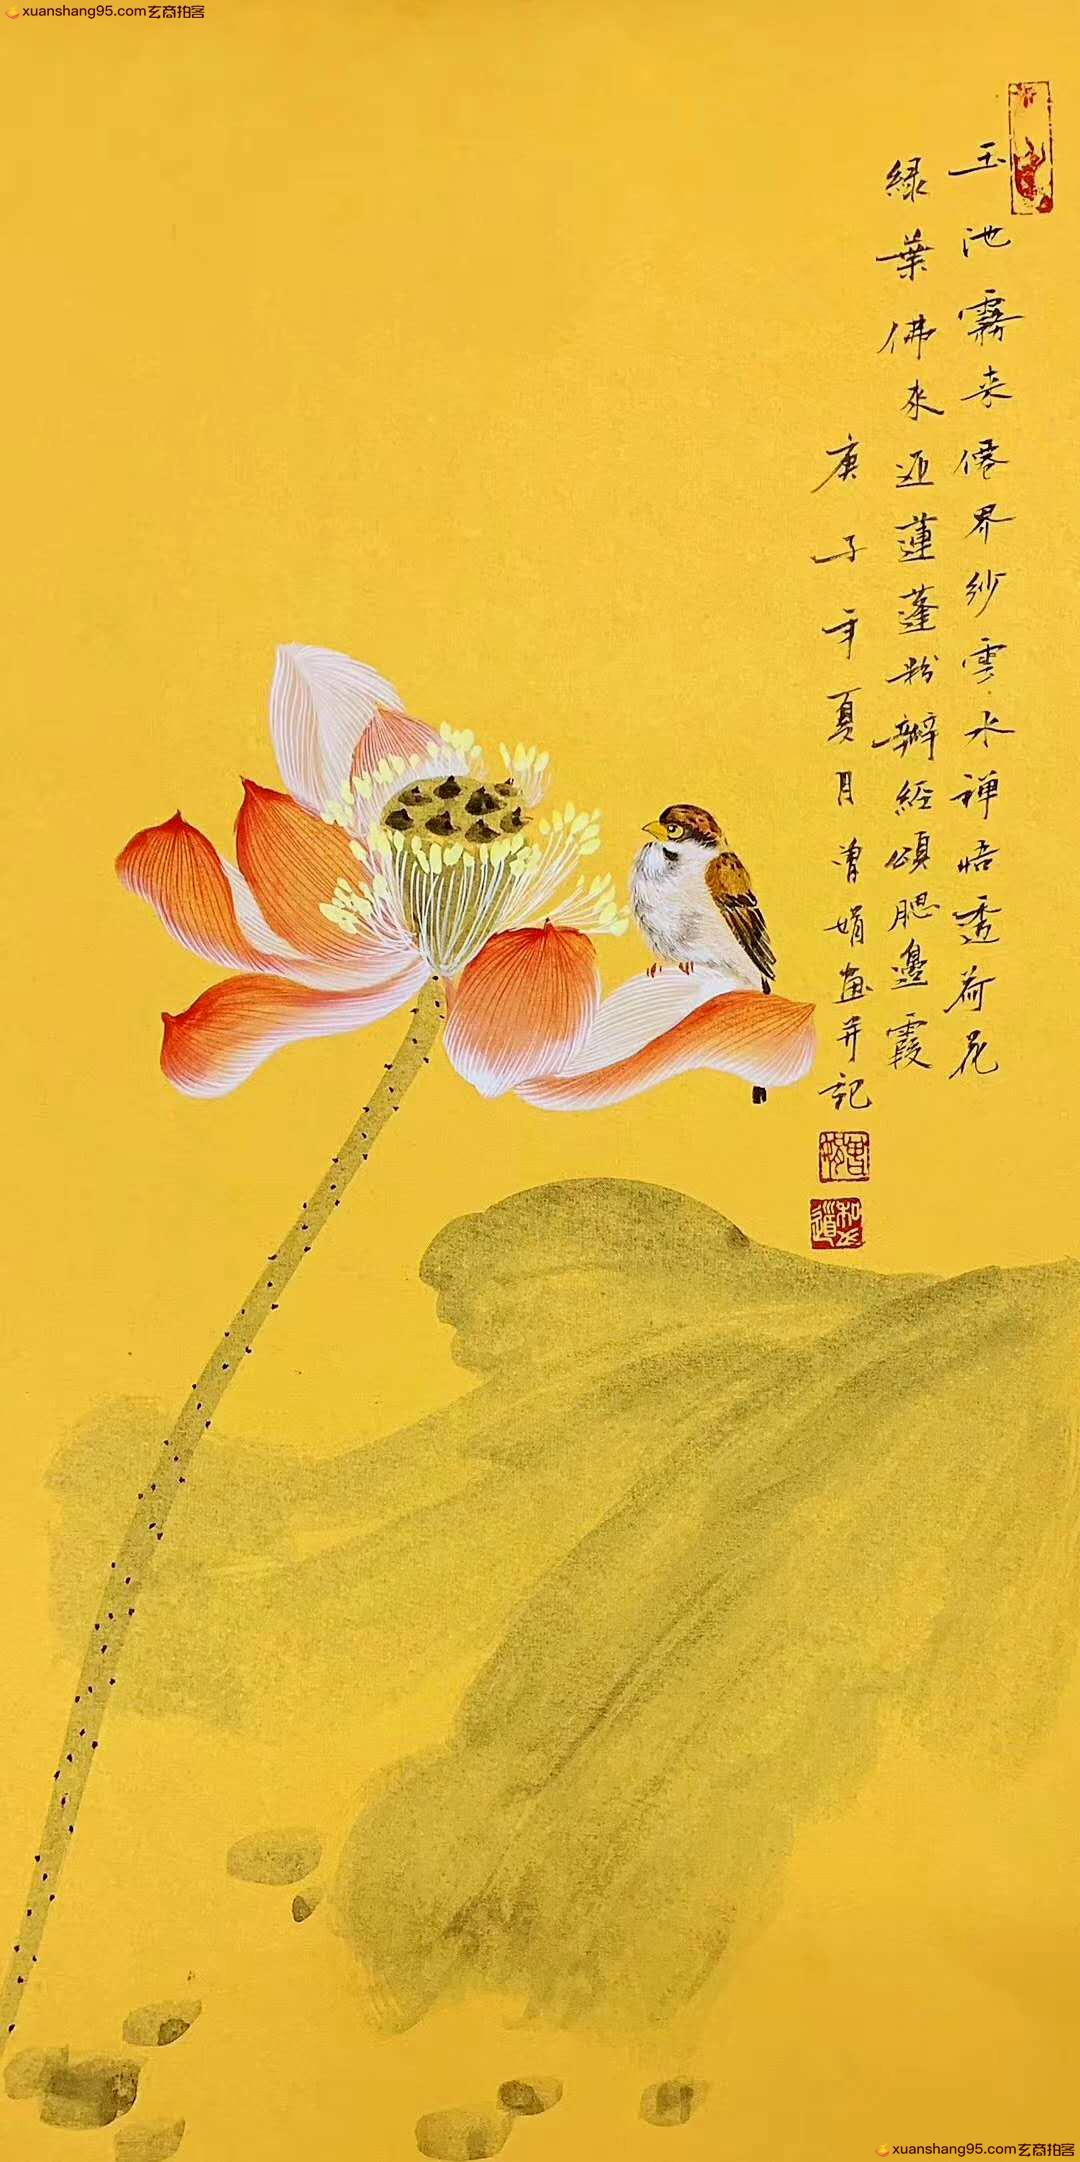 xuanshang95.com玄商拍客
玉池霧来僊界紗雲水禅悟透荷花
緑葉佛來迎蓮蓬粉瓣經頌腮邊霞
庚子年夏月曾娟画并記
xuanshang95.com玄商拍客